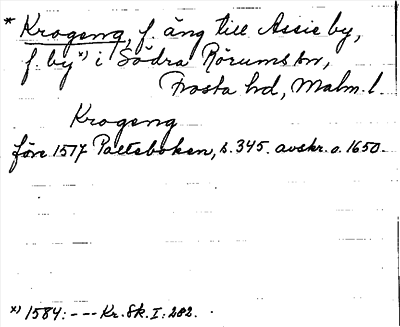 * Krogeng, f. äng till Assie by,
f. by *) i Södra Rörums sn,
Frosta hd, Malm. l.
Krogeng
före 1517 Palteboken, s. 345. avskr. o. 1650.
*) 1584: --- Kr. Sk. I: 282.